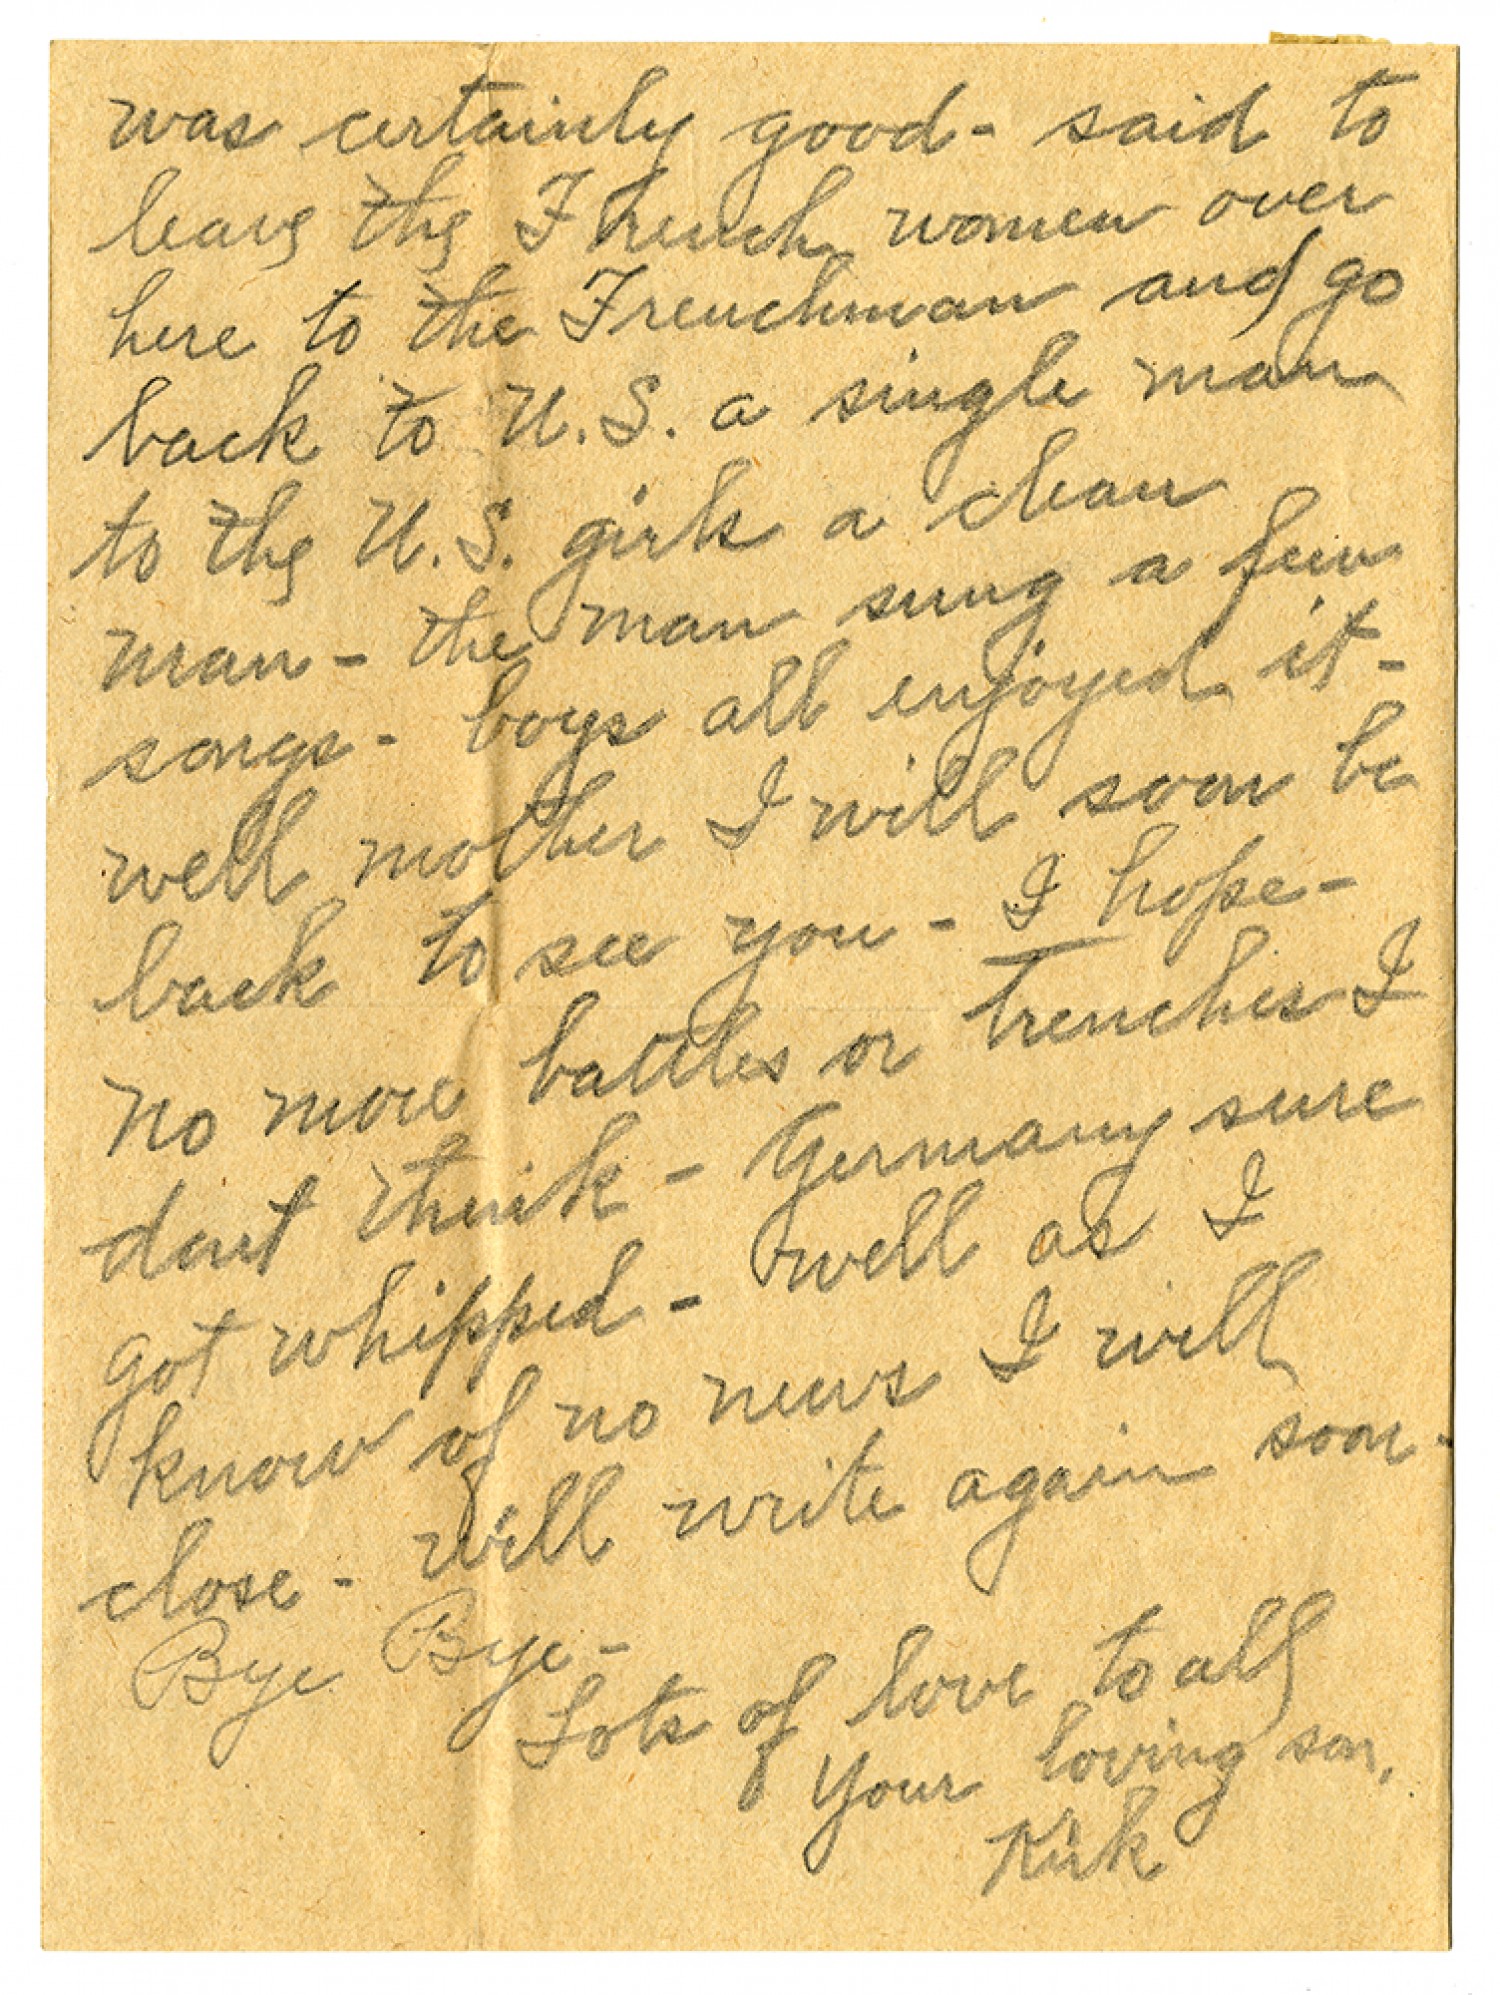 was certainly good - said to
leave the French women over
here to the Frenchman and go
back to U.S. a single man
to the U.S. girls a clean
man - the man sung a few
songs - boys all enjoyed it -
well mother I will soon be
back to see you - I hope -
no more battles or trenches I
dont think - Germany sure
got whipped - well as I
know of no news I will
close - will write again soon -
Bye Bye -
Lots of love to all
Your loving son,
Kirk